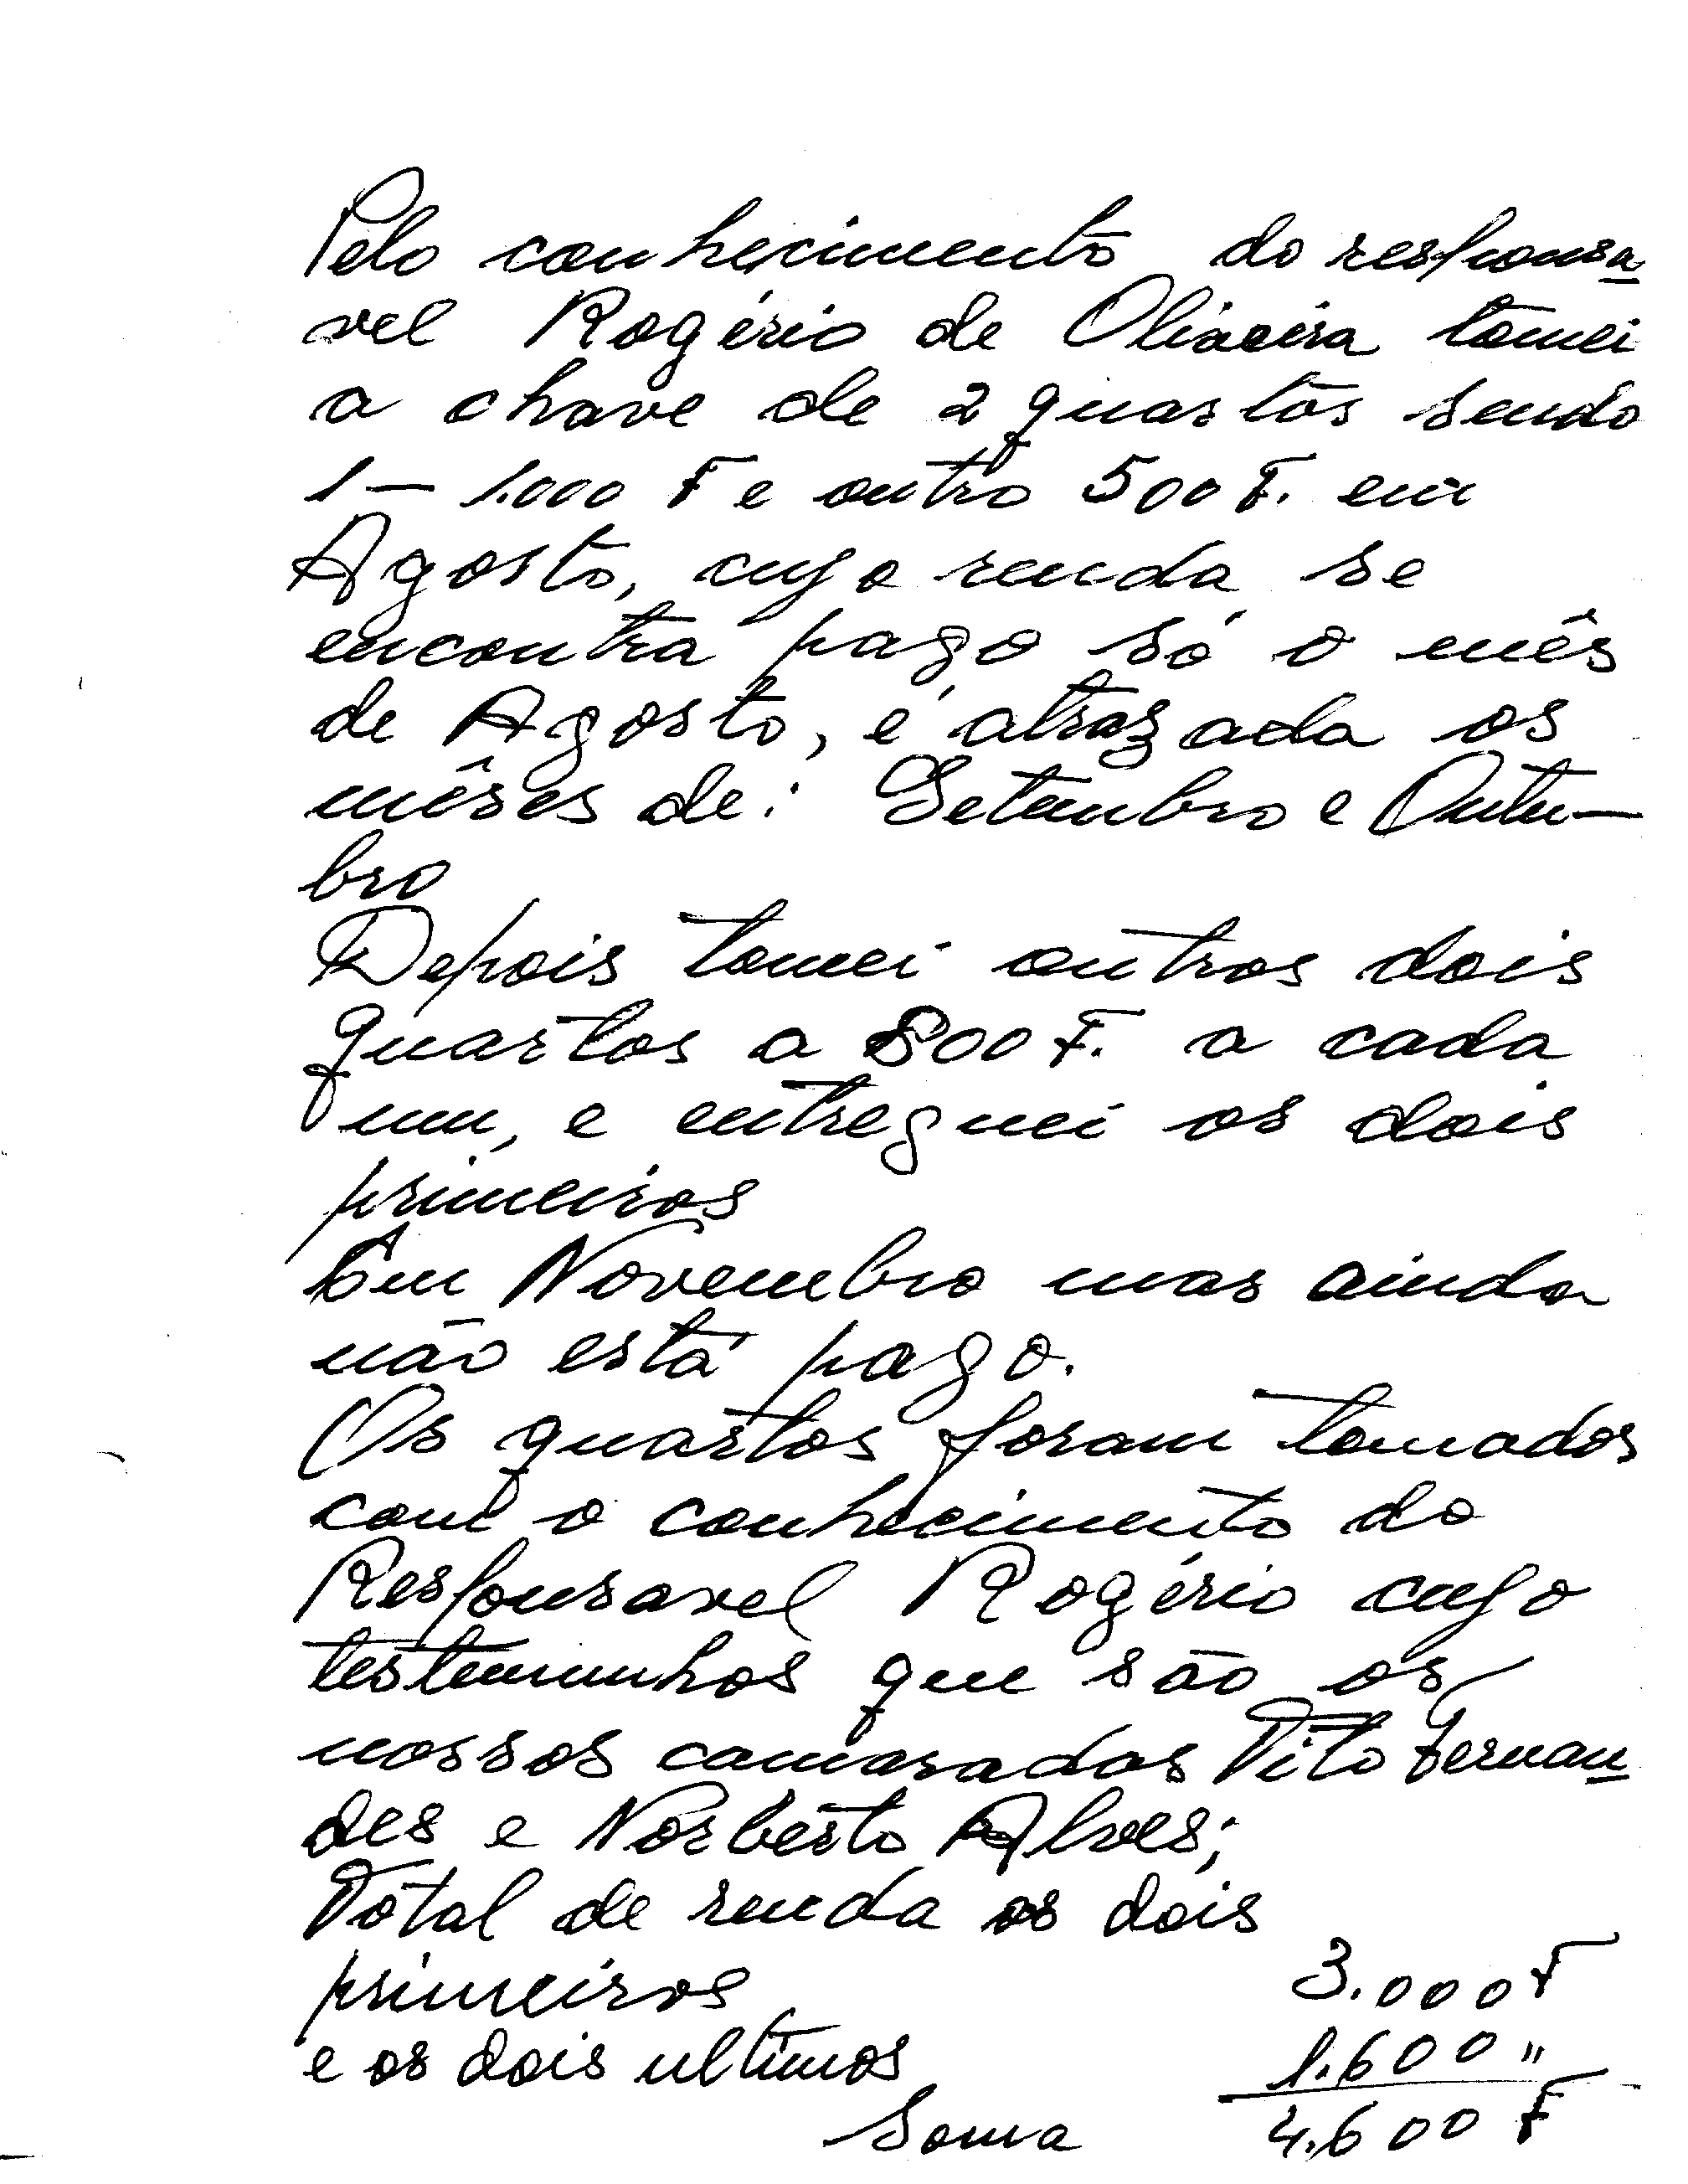 Pelo conhecimento do responsa
vel Rogério de Oliveira tomei
a chave de 2 quartos sendo
1 — 1.000 F e outro 500 F. em
Agosto, cujo renda se
encontra pago só o mês
de Agosto, é atrazada os
mêses de: Setembro e Outu—
bro
Depois tomei outros dois
quartos a 800 F. a cada
um, e entreguei os dois
primeiros
Em Novembro mas ainda
não está pago.
Os quartos foram tomados
com o conhecimento do
Responsavel Rogério cujo
testemunhos que são os
nossos camaradas Tito Fernan
des e Norberto Alves;
Total de renda os dois
primeiros 3.000 F
e os dois ultimos 1.600 "
Soma 4.600 F